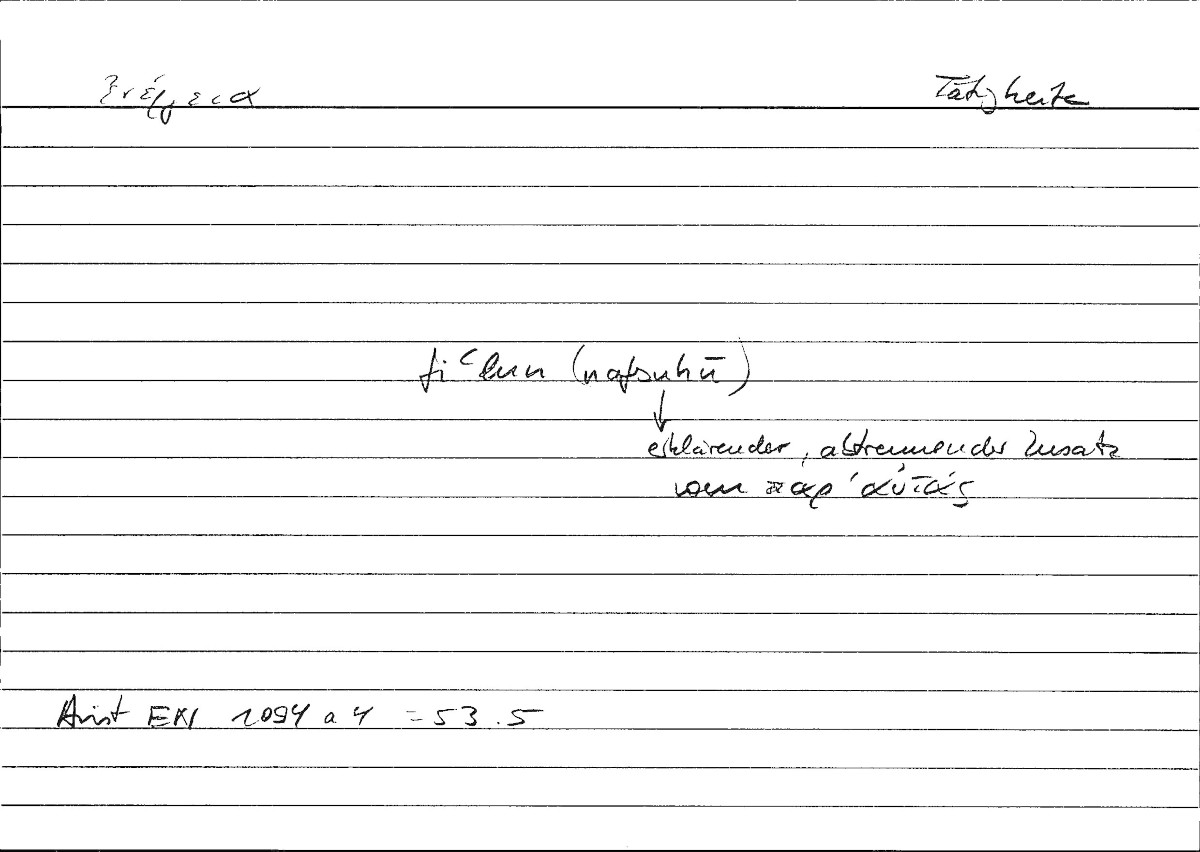 ἐνέργεια Tätigkeit
fiʿlun (nafsuhū)
↓
erklärender, abtrennender Zusatz
von παρ' αὐτάς
Arist EN 1094 a 4 = 53.5